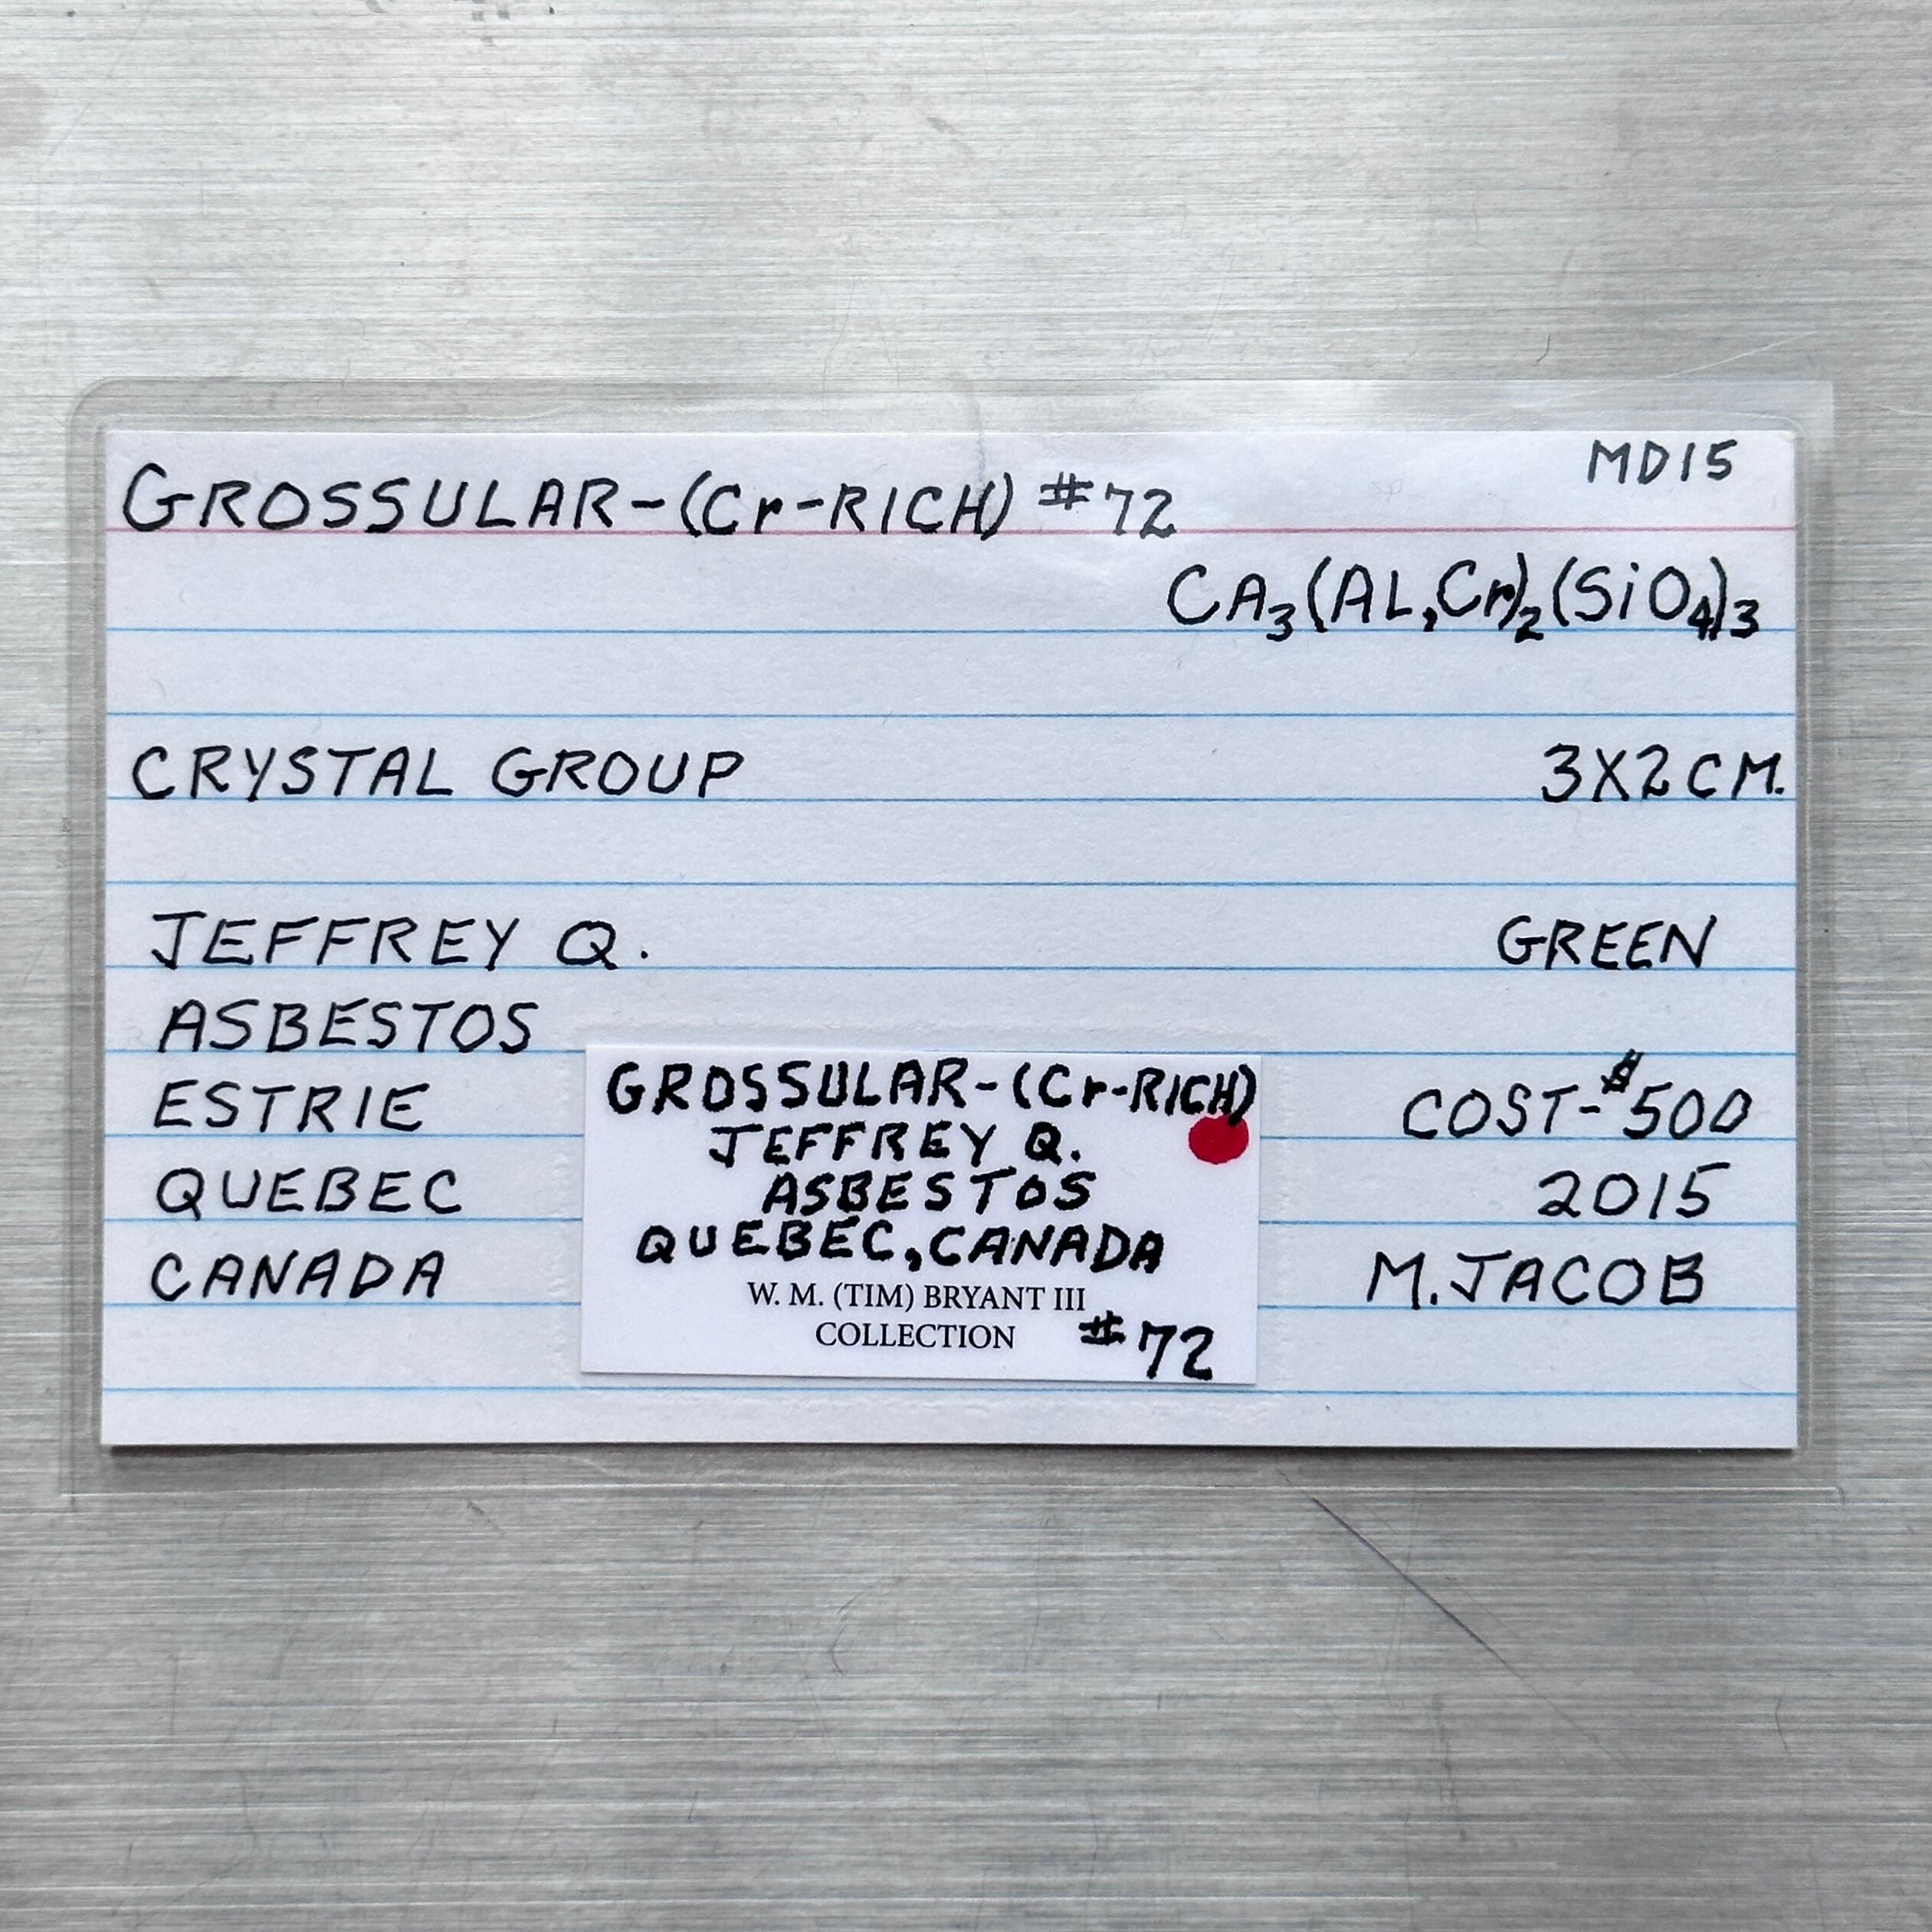 MD15
GROSSULAR-(Cr-RICH) #72
CA₃(AL,Cr)₂(SiO₄)₃
CRYSTAL GROUP 3X2CM.
JEFFREY Q. GREEN
ASBESTOS
ESTRIE COST-$500
QUEBEC 2015
CANADA M.JACOB
GROSSULAR-(Cr-RICH)
JEFFREY Q.
ASBESTOS
QUEBEC,CANADA
W. M. (TIM) BRYANT III
COLLECTION #72